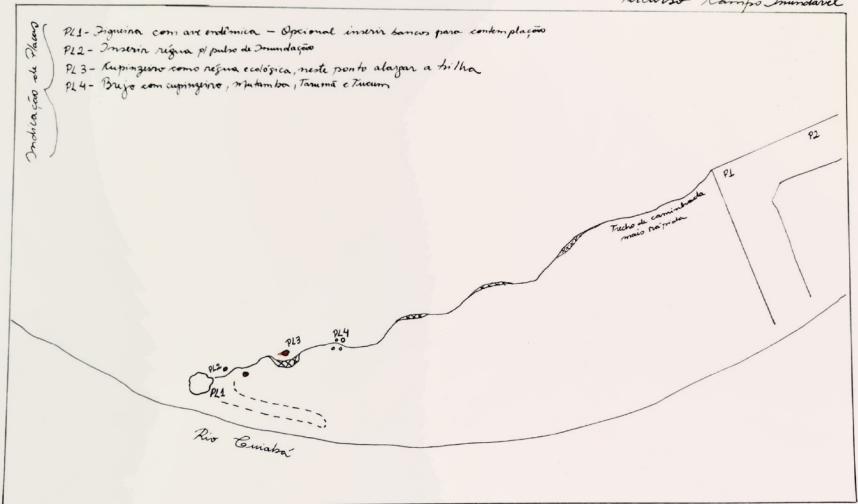 Percurso Campo Inundável
Indicação de Placas
PL1- Figueira com ave endêmica - Opcional inserir bancos para contemplação
PL2- Inserir régua p/ pulso de Inundação
PL3- Cupinzeiro como régua ecológica, neste ponto alargar a trilha
PL4- Brejo com cupinzeiro, Mutamba, Tarumã e Tucum
P2
P1
Trecho de caminhada
mais rápida
PL4
PL3
PL2
PL1
Rio Cuiabá